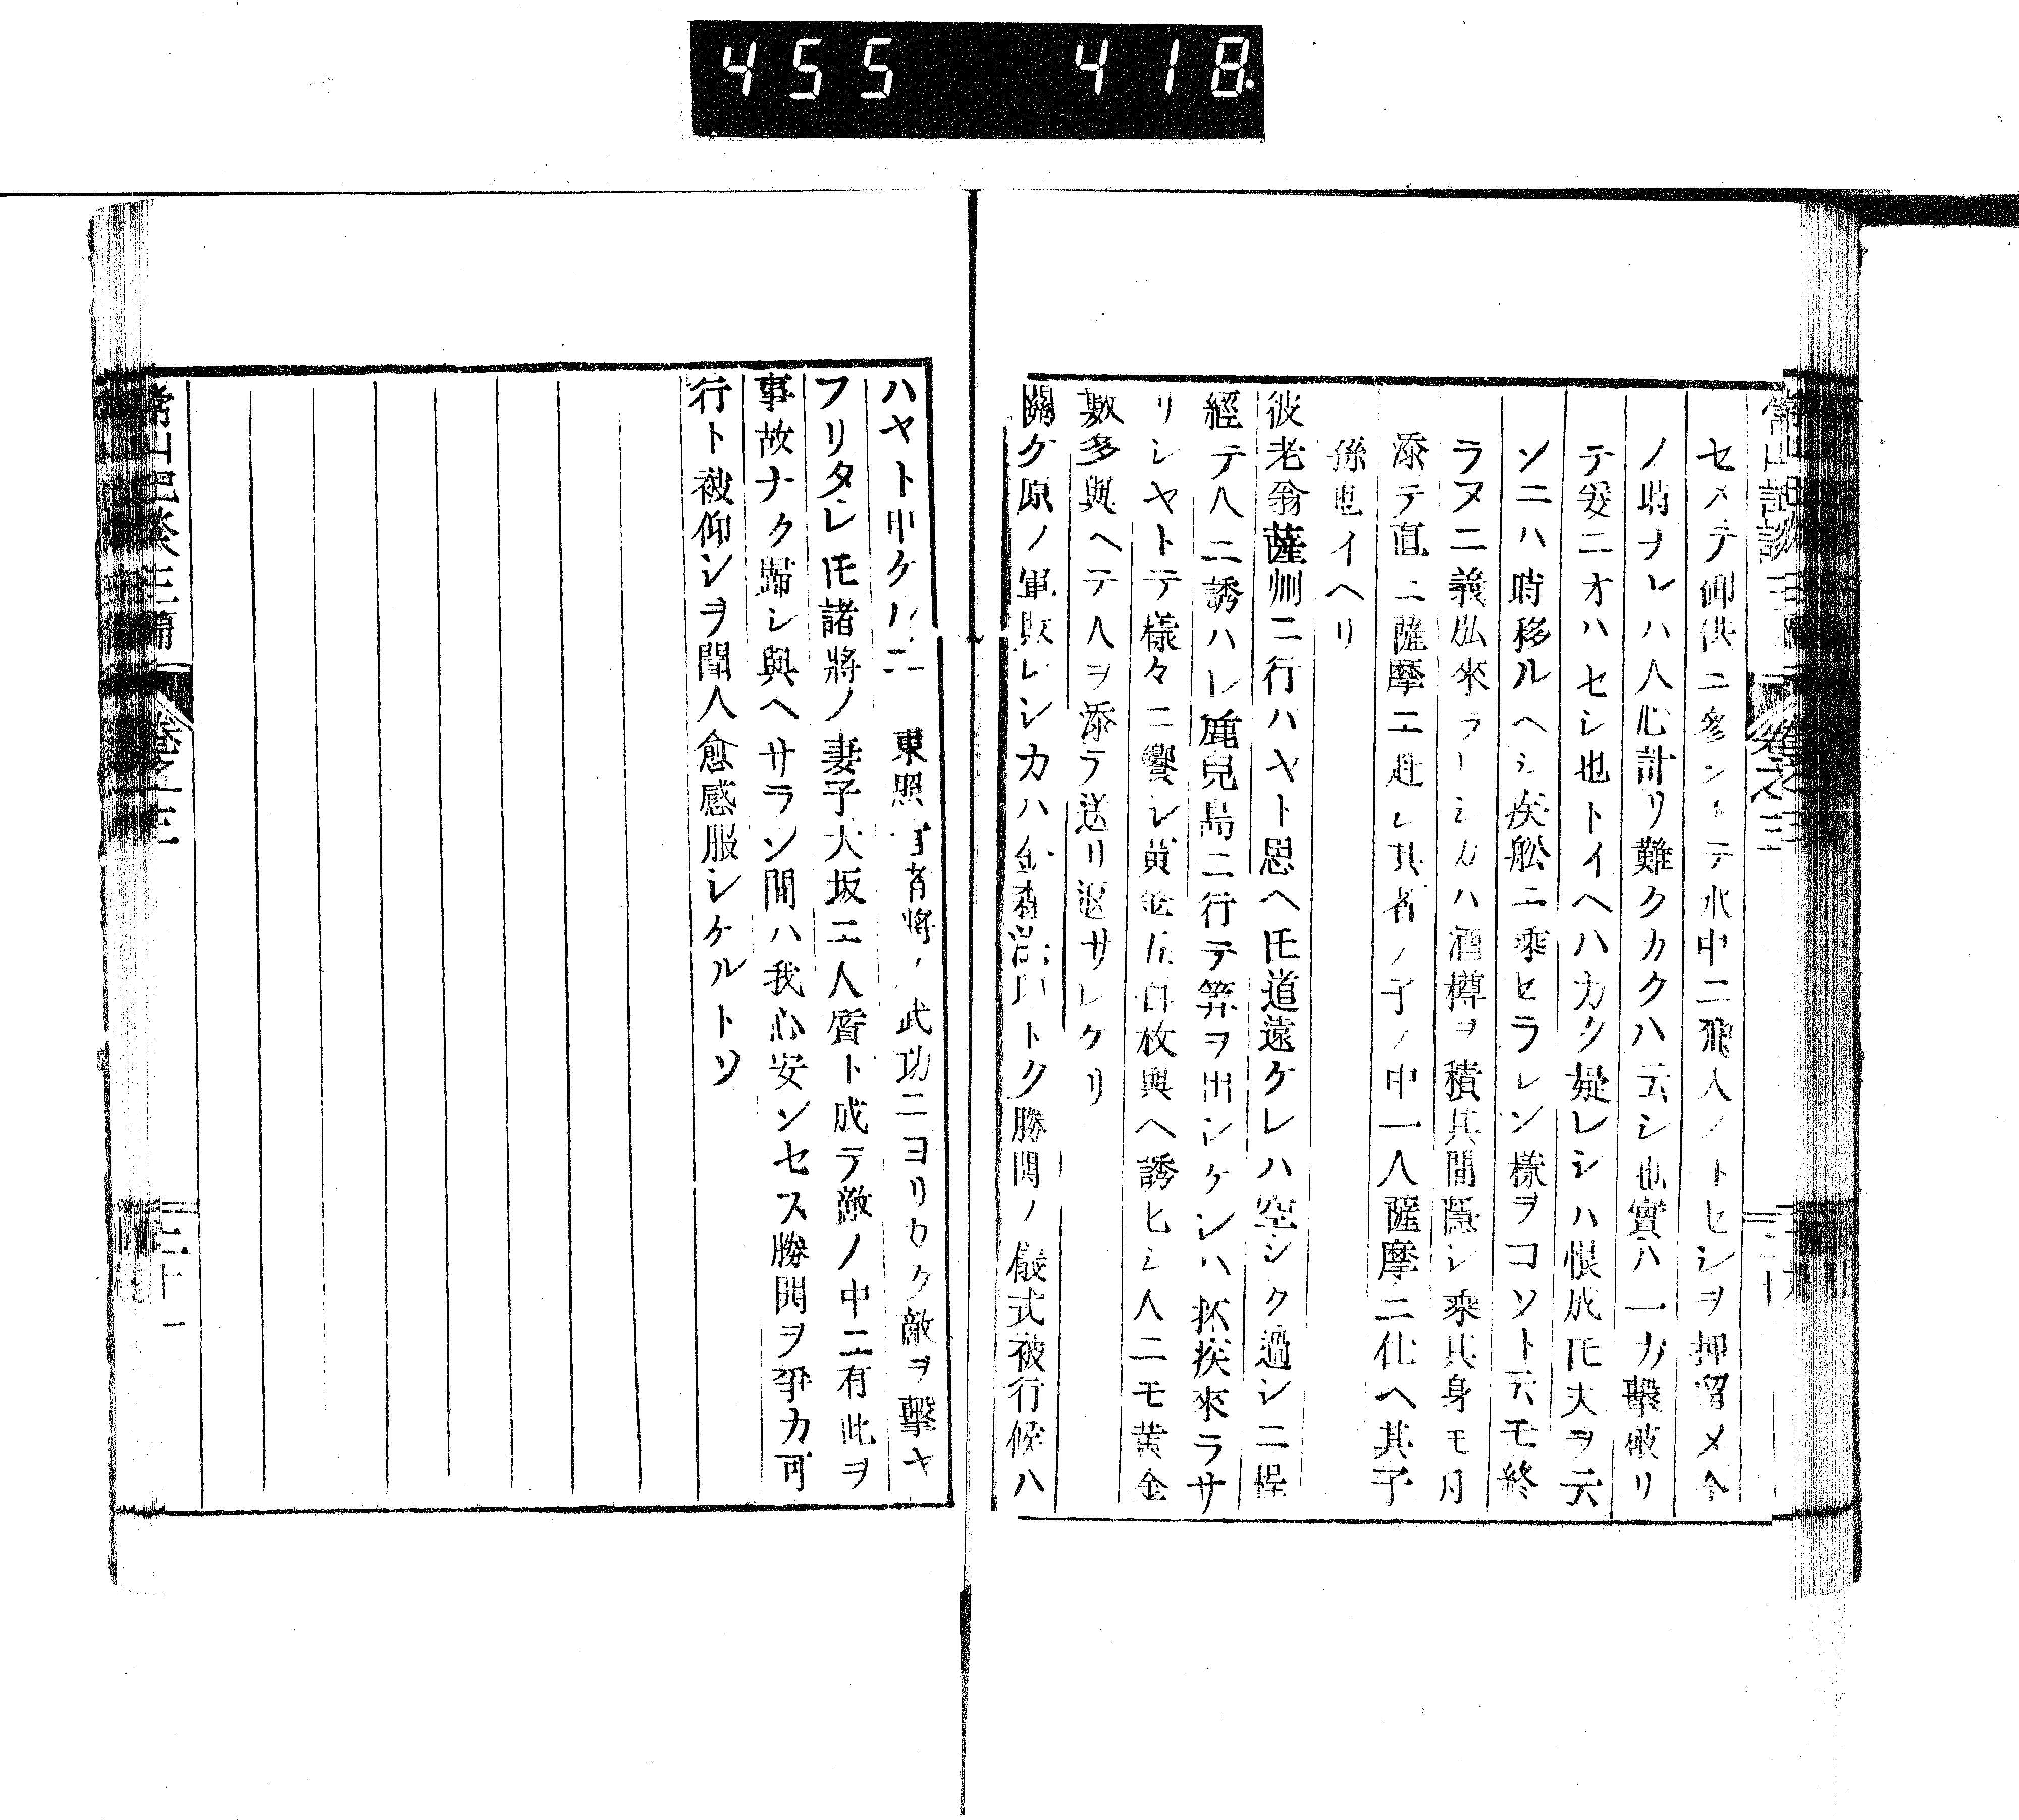 455 418
常山記談三編 卷之三 二十
セメテ御供ニ參ントテ水中ニ飛入ントセシヲ押留メ今
ノ時ナレハ人心計リ難クカクハ云シ也實ハ一方擊破リ
テ爰ニオハセシ也トイヘハカク疑レシハ恨成𪜈夫ヲ云
ソニハ時移ルヘシ疾舩ニ乘セラレン樣ヲコソト云モ終
ラヌニ義弘來ラレシカハ酒樽ヲ積其間隱シ乘其身モ
添テ直ニ薩摩ニ赴レ其者ノ子ノ中一人薩摩ニ仕ヘ其子
孫也イヘリ
彼老翁薩州ニ行ハヤト思ヘ𪜈道遠ケレハ空シク過シニ程
經テ人ニ誘ハレ鹿兒島ニ行テ筭ヲ出シケレハ疾來ラサ
リシヤトテ樣々ニ饗シ黄金五百枚與ヘ誘ヒシ人ニモ黄金
數多與ヘテ人ヲ添テ送リ返サレケリ
關ケ原ノ軍敗レシカハ金森法印トク勝鬨ノ儀式被行候ハ
ハヤト申ケルニ 東照宮諸將ノ武功ニヨリカク敵ヲ擊ヤ
フリタレ𪜈諸將ノ妻子大坂ニ人質ト成テ敵ノ中ニ有此ヲ
事故ナク歸シ與ヘサラン間ハ我心安ンセス勝鬨ヲ爭カ可
行ト被仰シヲ聞人愈感服シケルトソ
常山記談三編 卷之三 二十一